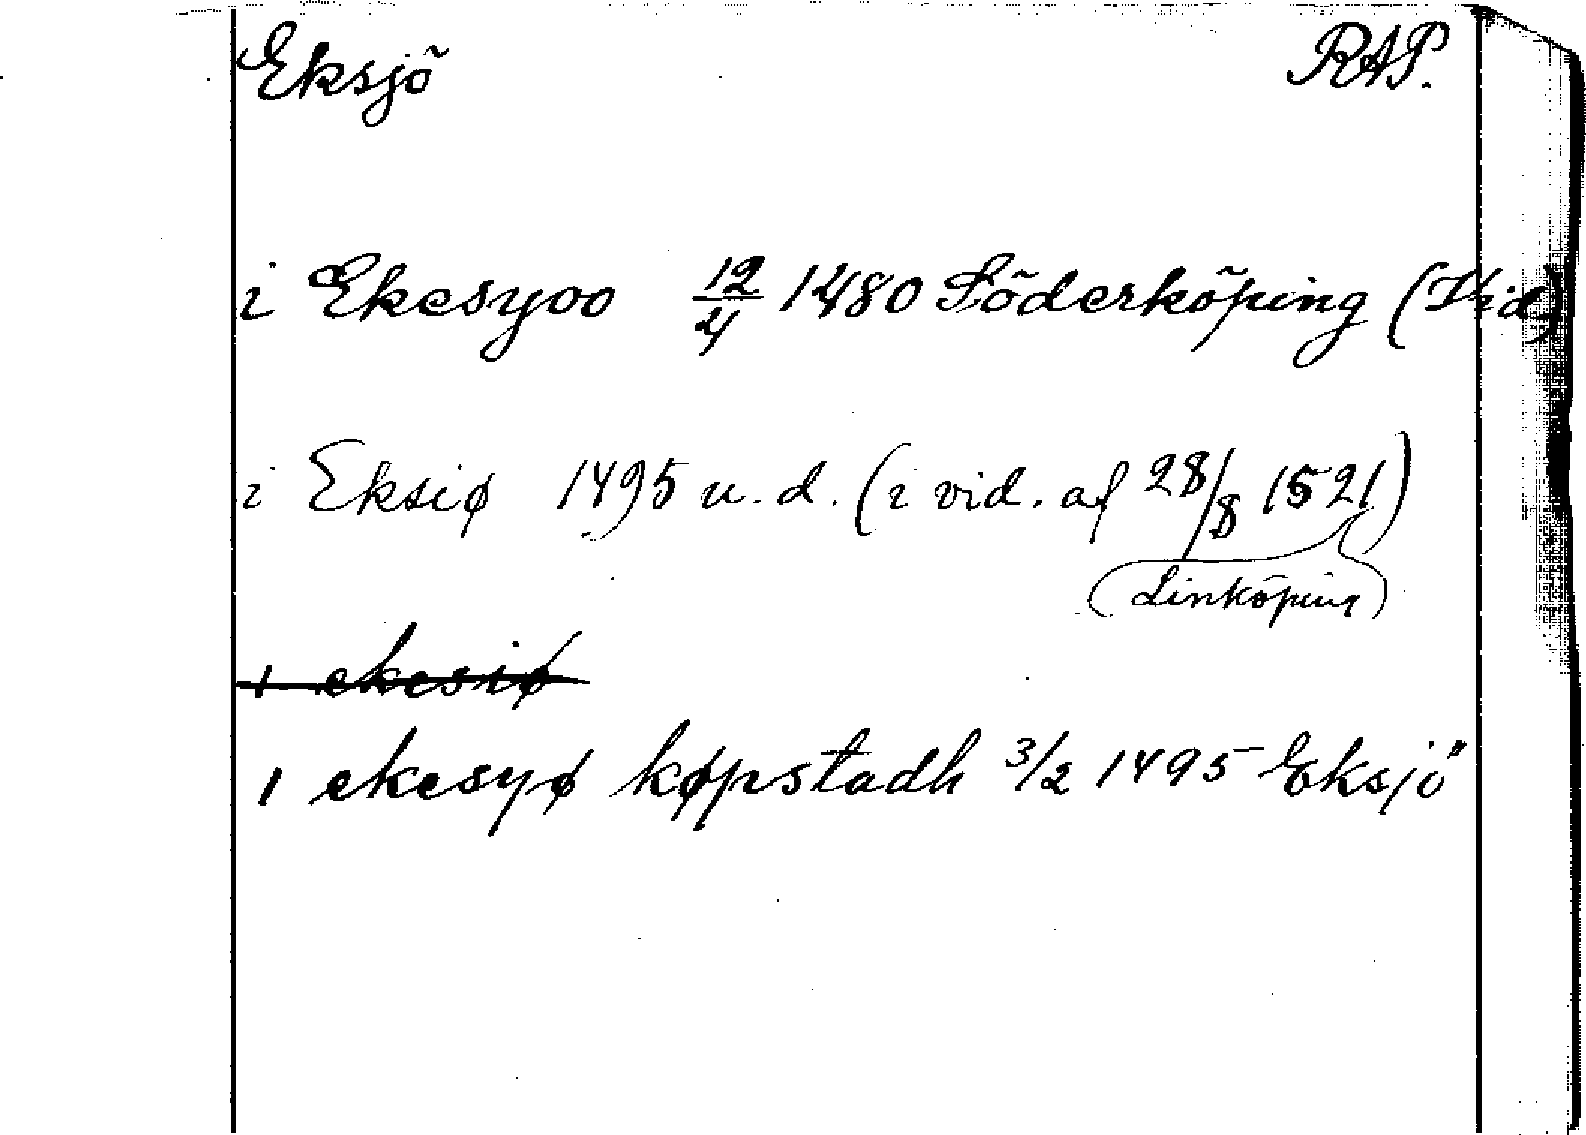 Eksjö RAP.
i Ekesyoo 12/4 1480 Söderköping (Vid)
i Eksiø 1495 u. d. (i vid. af 28/8 1521)
(Linköping)
i ekesiø
i ekesyø køpstadh 3/2 1495 Eksjö